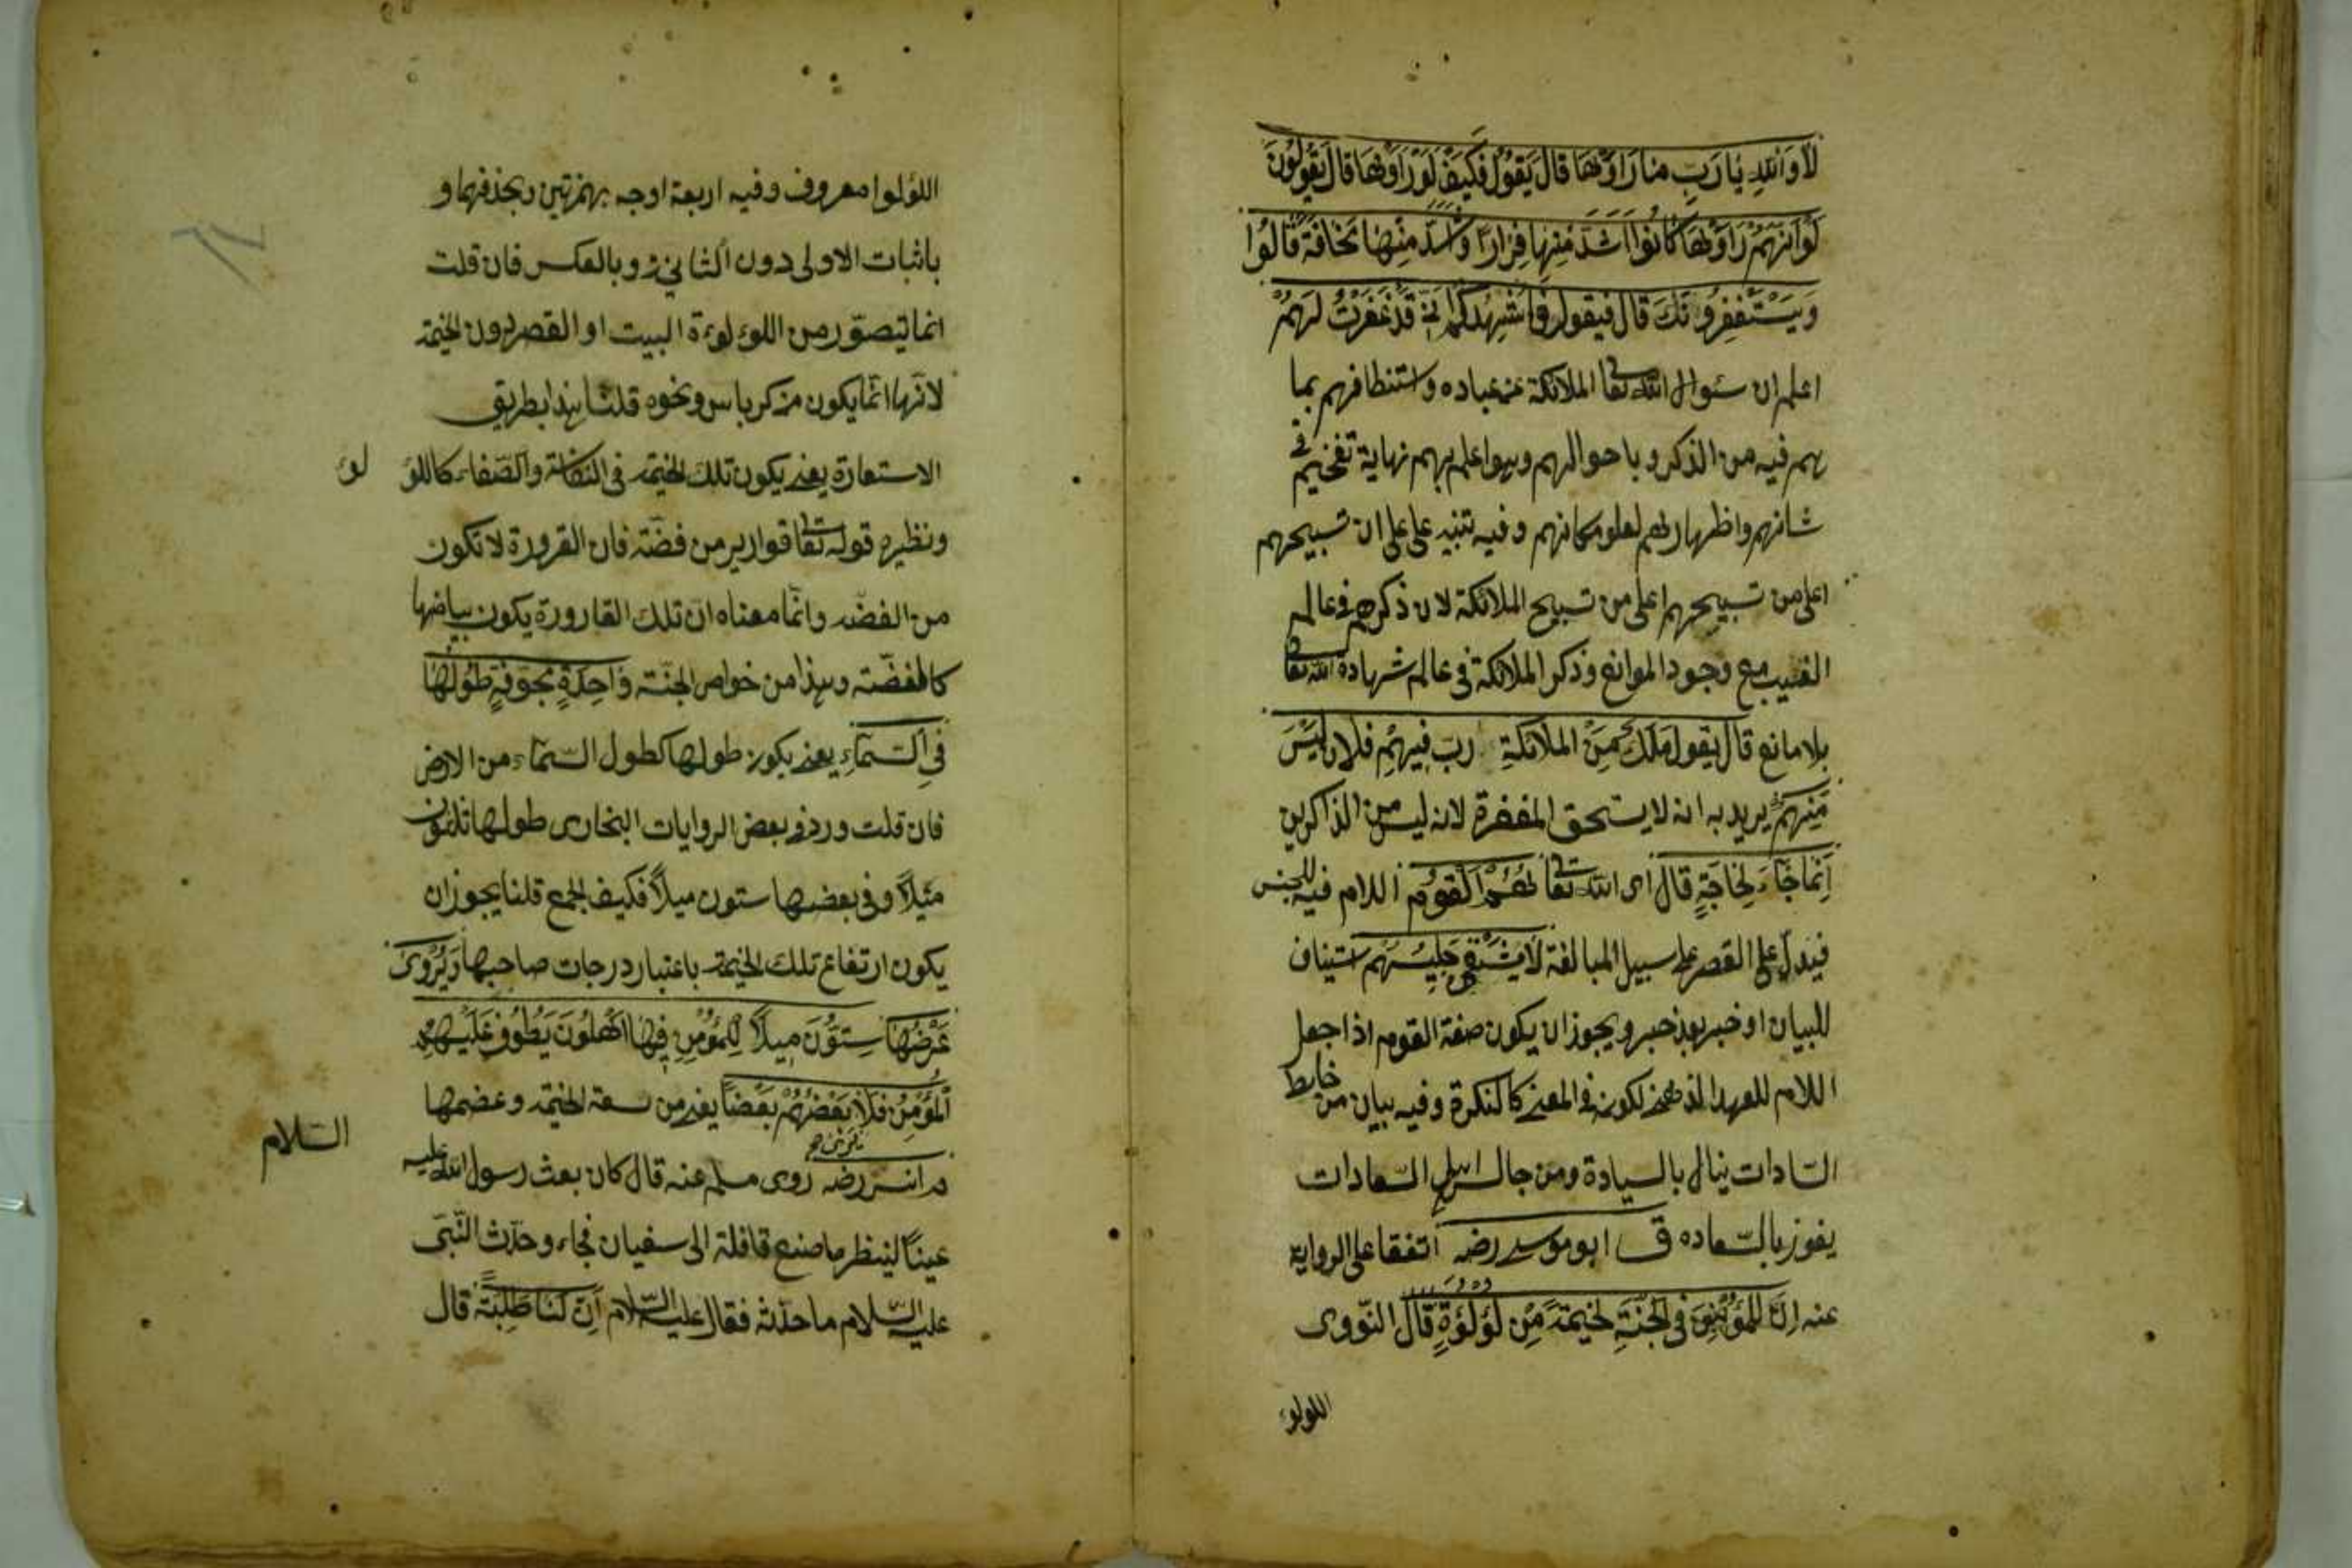 لا والله يا رب ما راوها قال يقول فكيف لو راوها قال يقولون
لو انهم راوها كانوا اشد منها فرارا واشد منها مخافة قالوا
ويستغفرونك قال فيقول فاشهدكم اني قد غفرت لهم
اعلم ان سئوال الله تعا الملائكة عن عباده واستنطافهم بما
هم فيه من الذكر و باحوالهم وهو اعلم بهم نهاية تفخيم في
شانهم واظهار لهم لعلو مكانهم وفيه تنبيه على على ان تسبيحهم
اعلى من تسبيحهم اعلى من تسبيح الملائكة لان ذكرهم في عالم
الغيب مع وجود الموانع وذكر الملائكة في عالم شهادة الله تعا
بلا مانع قال يقول ملك من الملائكة رب فيهم فلان ليس
منهم يريد به انه لا يستحق المغفرة لانه ليس من الذاكرين
انما جاء لحاجة قال اى الله تعا هم القوم اللام فيه للجنس
فيدل على القصر على سبيل المبالغة لا يشقى جليسهم استيناف
للبيان او خبر بعد خبر ويجوز ان يكون صفة القوم اذا جعل
اللام للعهد الذهني لكونه في المعنى كالنكرة وفيه بيان من خالط
السادات ينال بالسيادة ومن جالس اهل السعادات
يفوز بالسعاده ق ابو موسى رضه اتفقا على الرواية
عنه ان للمؤمن في الجنة لخيمة من لؤلؤة قال النووى
اللولو
اللؤلوا معروف وفيه اربعة اوجه بهمزتين وبحذفهما و
باثبات الاولى دون الثاني و بالعكس فان قلت
انما يتصور من اللوء لوءة البيت او القصر دون الخيمة
لانها انما يكون من كرباس ونحوه قلنا هذا بطريق
الاستعارة يعني يكون تلك الخيمة في النفاسة والصفاء كاللؤ لؤ
ونظيره قوله تعا قوارير من فضة فان القرورة لا تكون
من الفضه وانما معناه ان تلك القارورة يكون بياضها
كالفضة وهذا من خواص الجنة واحدة مجوفة طولها
في السماء يعني يكون طولها كطول السماء من الارض
فان قلت ورد في بعض الروايات البخارى طولها ثلثون
ميلا وفي بعضها ستون ميلا فكيف الجمع قلنا يجوز ان
يكون ارتفاع تلك الخيمة باعتبار درجات صاحبها ويروى
عرضها ستون ميلا للمؤمن فيها اهلون يطوف عليهم
المؤمن فلا بعضهم بعضا يعني من سعة الخيمة وعضمها
يرى صح
م انس رضه روى مسلم عنه قال كان بعث رسول الله عليه السلام
عينا لينظر ما صنع قافلة الى سفيان فجاء وحدث النبى
عليه السلام ما حدثه فقال عليه السلام ان لنا طلبة قال